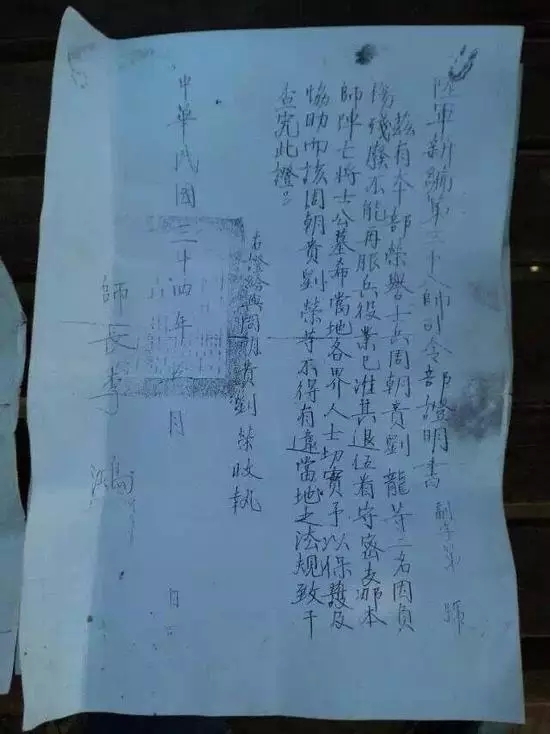 陸軍新編第三十八師司令部證明書 副字第 號
茲有本部榮譽士兵周朝貴劉 龍等二名因負
傷殘廢不能再服兵役業已准其退伍看守密支那本
師陣亡將士公墓希當地各界人士切實予以保護及
協助而該周朝貴劉榮等不得有違當地之法規致干
查究此證
右證給與周朝貴劉榮收執
中華民國三十四年 月 日
師長李 鴻